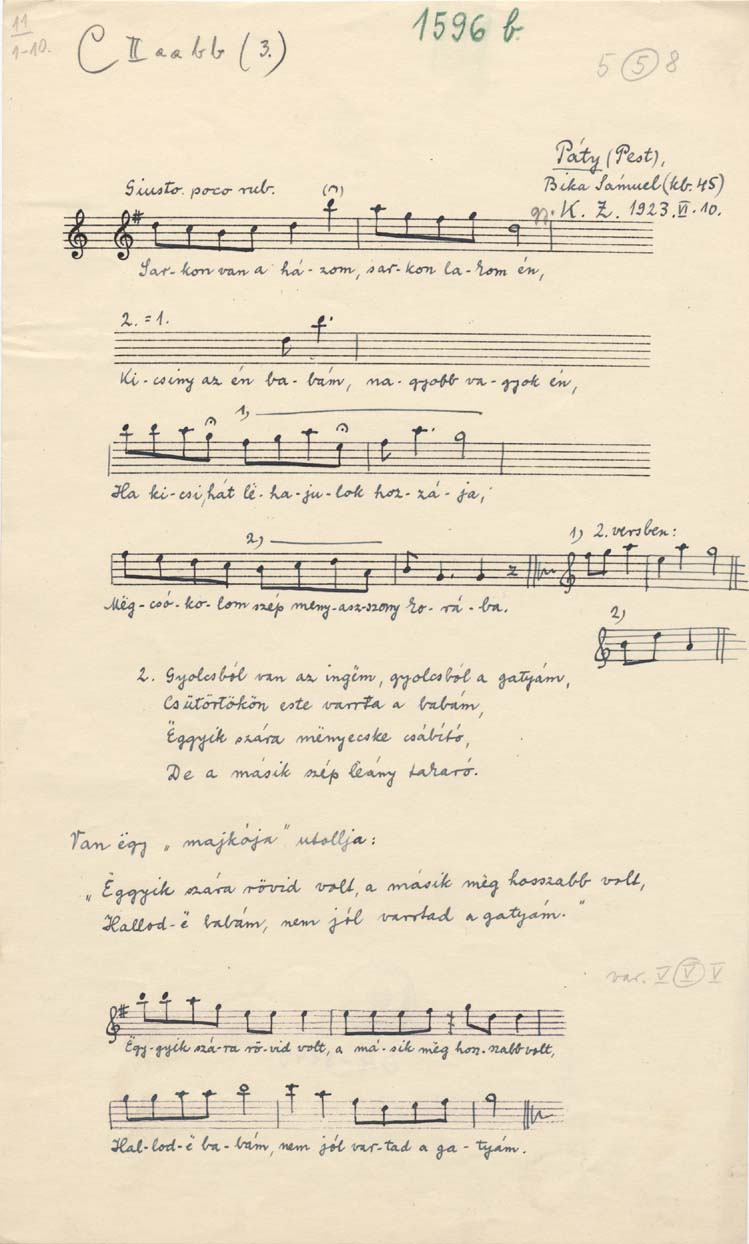 11
1-10.
C II a a b b (3.)
1596 b.
5 (5) 8
Páty (Pest),
Bika Sámuel (kb. 45)
gy. K. Z. 1923. VI. 10.
Giusto. poco rub.
Sar-kon van a há-zom, sar-kon la-kom én,
2. = 1.
Ki-csiny az én ba-bám, na-gyobb va-gyok én,
1)
Ha ki-csi, hát lë-ha-ju-lok hoz-zá-ja,
2)
1) 2. versben:
Mëg-csó-ko-lom szép meny-asz-szony ko-rá-ba.
2)
2. Gyolcsból van az ingëm, gyolcsból a gatyám,
Csütörtökön este varrta a babám,
Ëggyik szára mënyecske csábító,
De a másik szép lëány takaró.
Van ëgy „majkója" utollja:
„Ëggyik szára rövid volt, a másik mëg hosszabb volt,
Hallod-ë babám, nem jól varrtad a gatyám."
var. V (V) V
Ëgy-gyik szá-ra rö-vid volt, a má-sik mëg hosz-szabb volt,
Hal-lod-ë ba-bám, nem jól var-tad a ga-tyám.